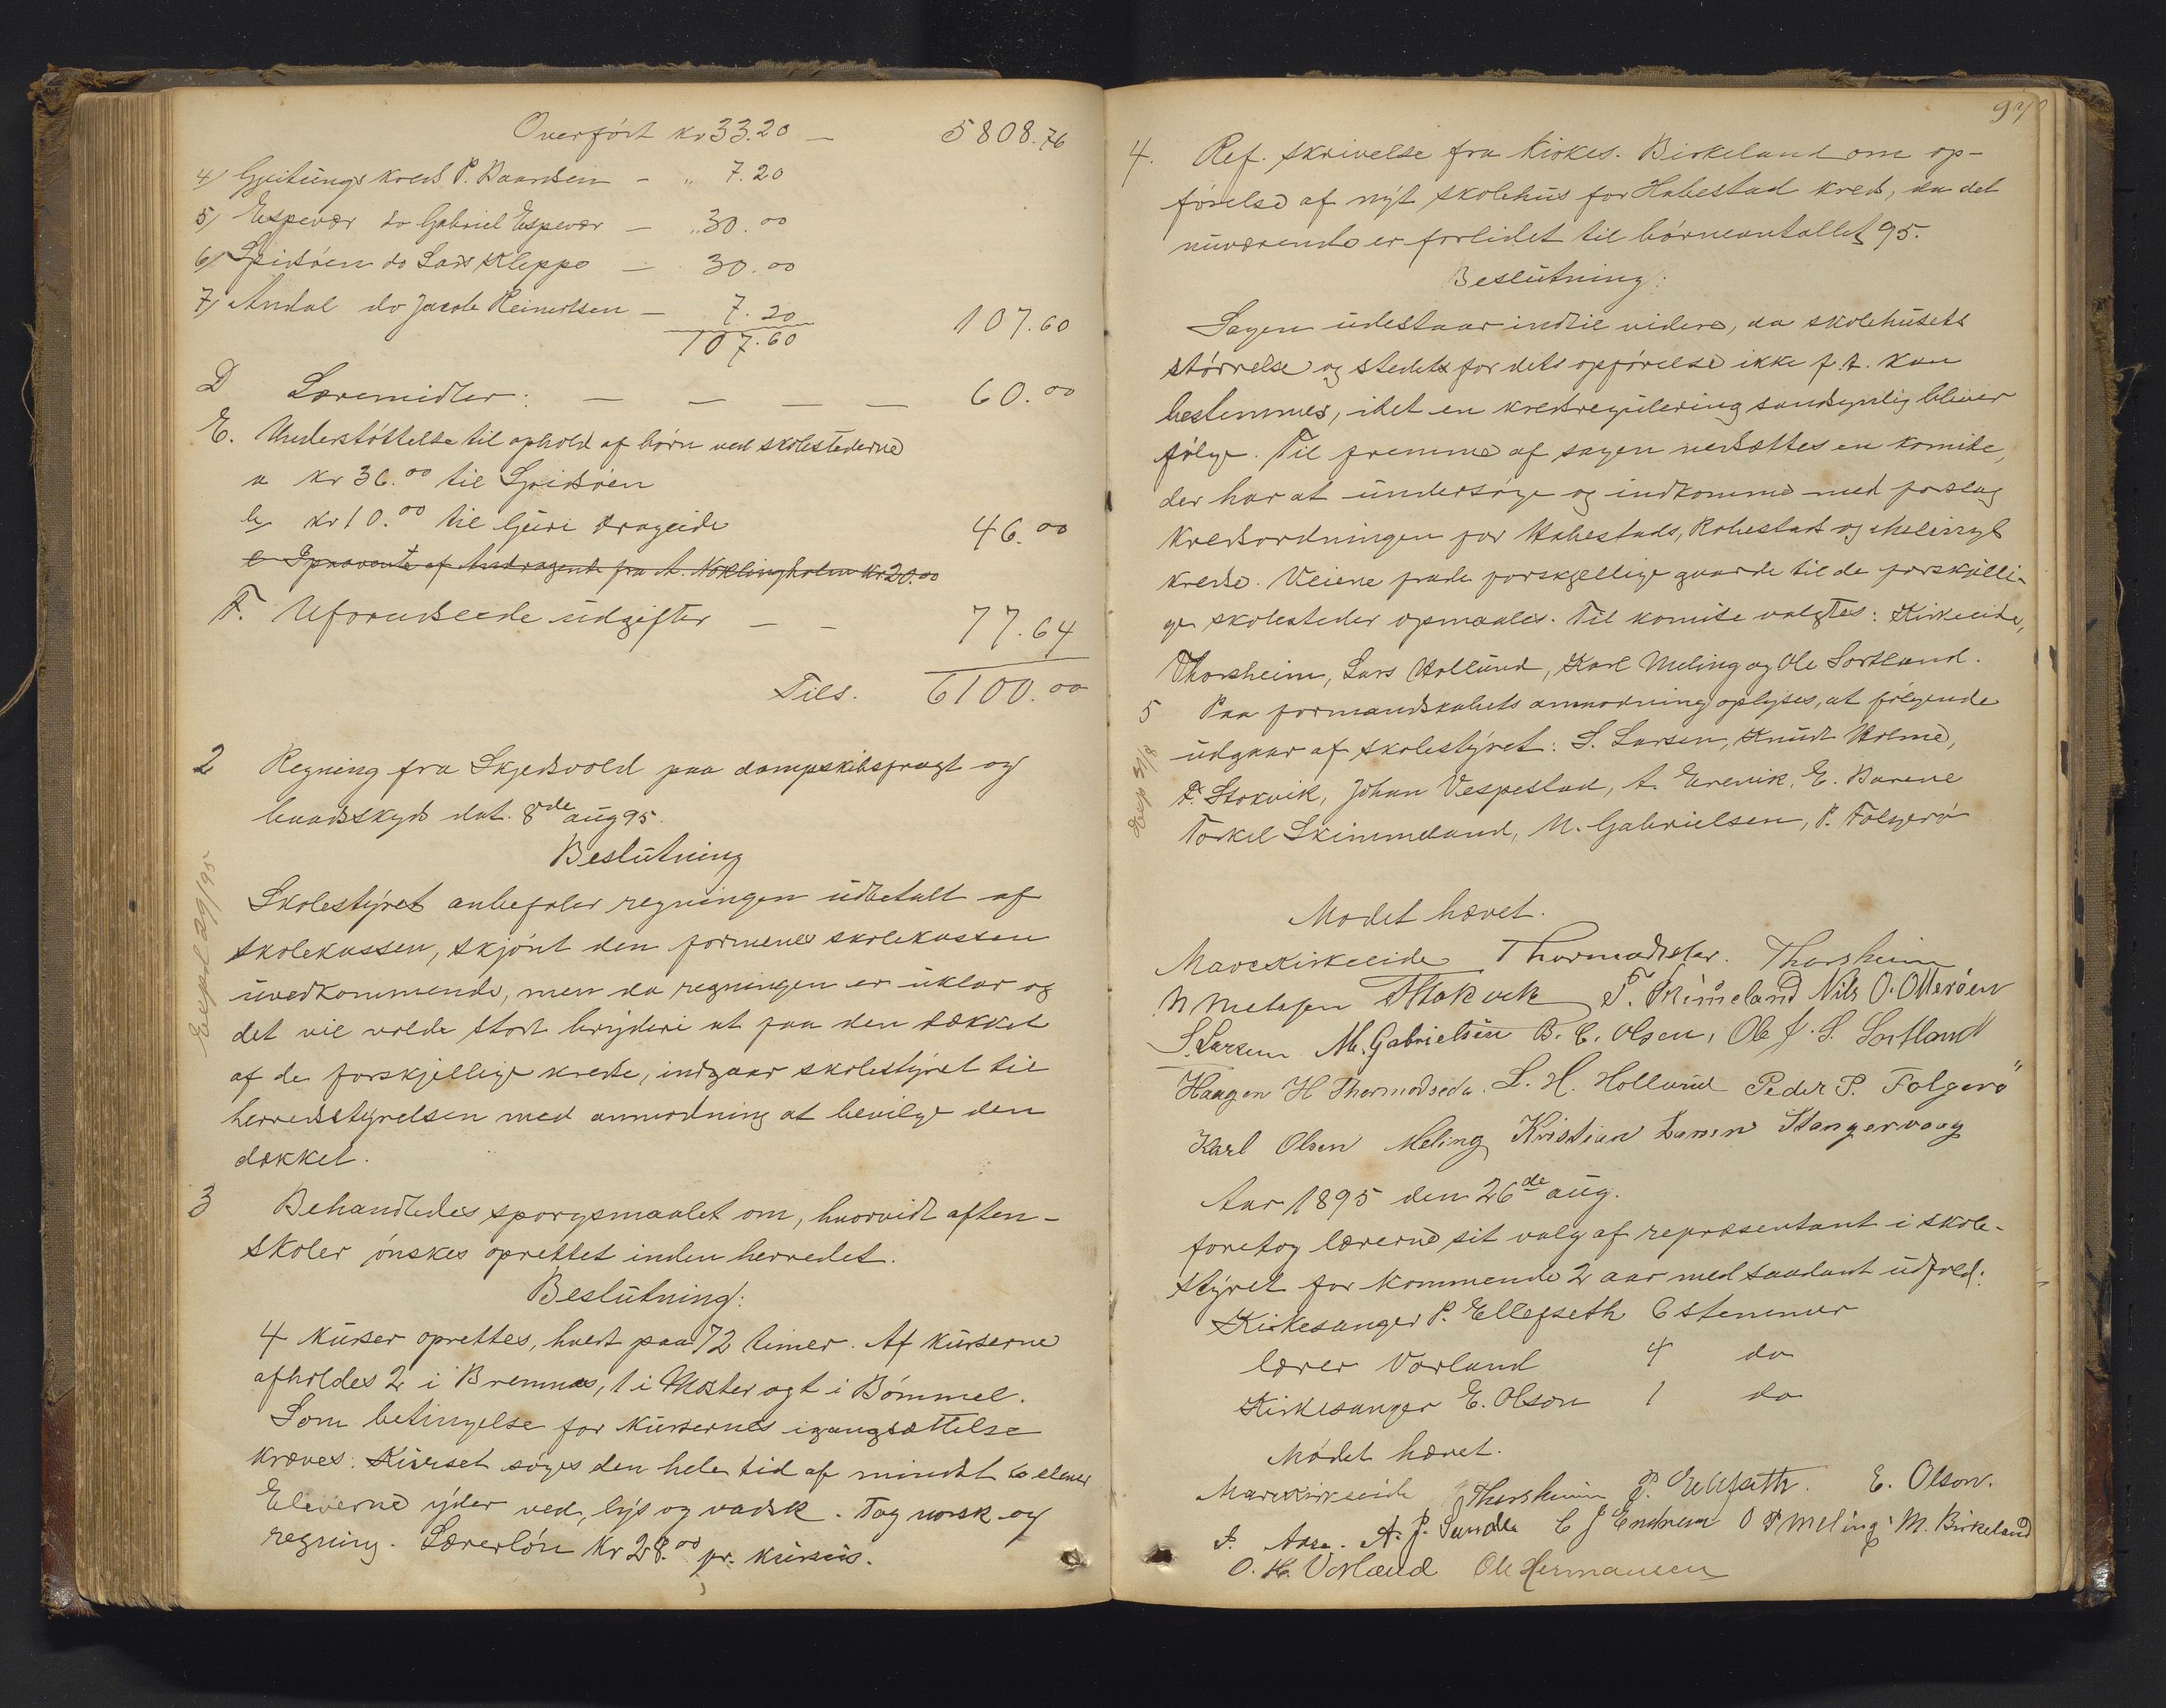 Overført kr 33.20 — 5808.76
4) Gjeitungs kreds P. Baardsen — „ 7.20
5) Espevær do Gabriel Espevær — „ 30.00
6) Spidsøen do Lars Kleppe — 30.00
7) Andal do Jacob Reinertsen — 7.20 107.60
107.60
D Læremidler: — — — — 60.00
E. Understøttelse til ophold af børn ved skolestederne
a kr 36.00 til Spidsøen
b kr 10.00 til Guri Drageide 46.00
af Andragende fra A. Nøklingholm kr 20.00
F. Uforudseede udgifter — — 77.64
Tils. 6100.00
2 Regning fra Skjedsvold paa dampskibsfragt og
baadskyds dat. 8de aug 95.
Beslutning
Exped 29/9 95
Skolestyret anbefaler regningen udbetalt af
skolekassen, skjønt den formenes skolekassen
uvedkommende, men da regningen er uklar og
det vil volde stort bryderi at faa den dækket
af de forskjellige kredse, indgaar skolestyret til
herredsstyrelsen med anmodning at bevilge den
dækket.
3 Behandledes spørgsmaalet om, hvorvidt aften-
skoler ønskes oprettet inden herredet.
Beslutning:
4 kurser oprettes, hvert paa 72 timer. Af kurserne
afholdes 2 i Bremnes, 1 i Moster og 1 i Bømmel.
Som betingelse for kursernes igangsættelse
kræves: Kurset søges den hele tid af mindst 10 elever
Eleverne yder ved, lys og vadsk. Fag norsk og
regning. Lærerløn kr 28.00 pr. kursus.
97
4. Ref. skrivelse fra kirkes. Birkeland om op-
førelse af nyt skolehus for Habestad kreds, da det
nuværende er forlidet til børneantallet, 95.
Beslutning:
Sagen udestaar indtil videre, da skolehusets
størrelse og stedet for dets opførelse ikke f.t. kan
bestemmes, idet en kredsregulering sandsynlig bliver
følge. Til fremme af sagen nedsættes en komite,
der har at undersøge og indkomme med forslag
kredsordningen for Habestads, Robestad og Melings
kredse. Veiene fra de forskjellige gaarde til de forskjelli-
ge skolesteder opmaales. Til komite valgtes: Kirkeeide,
Thorsheim, Lars Hollund, Karl Meling og Ole Sortland.
5 Paa formandskabets anmodning oplyses, at følgende
Exp 31/8
udgaar af skolestyret: S. Larsen, Knud Holme,
F. Stokvik, Johan Vespestad, A. Ervik, E. Barane
Torkel Skimmeland, M. Gabrielsen, P. Folgerø
Mødet hævet.
Marckirkeeide Thormodsæter. Thorsheim
N Metesen FStokvik T. Skimeland Nils O. Otterøen
S. Larsen M. Gabrielsen B. C. Olsen, Ole J. S. Sortland
Haagen H Thormodsæter. L. H. Hollund Peder P. Folgerö
Karl Olsen Meling Kristian Larsen Stangervaag
Aar 1895 den 26de aug.
foretog lærerne sit valg af repræsentant i skole-
styret for kommende 2 aar med saadant udfald:
Kirkesanger P. Ellefseth 6 stemmer
lærer Vorland 4 do
Kirkesanger E. Olson 1 do
Mødet hævet.
Marckirkeeide Thorsheim P. Ellefseth. E. Olson.
A. P. Sunde C J Endresen O P Meling M. Birkeland
O. H. Vorland Ole Hermansen